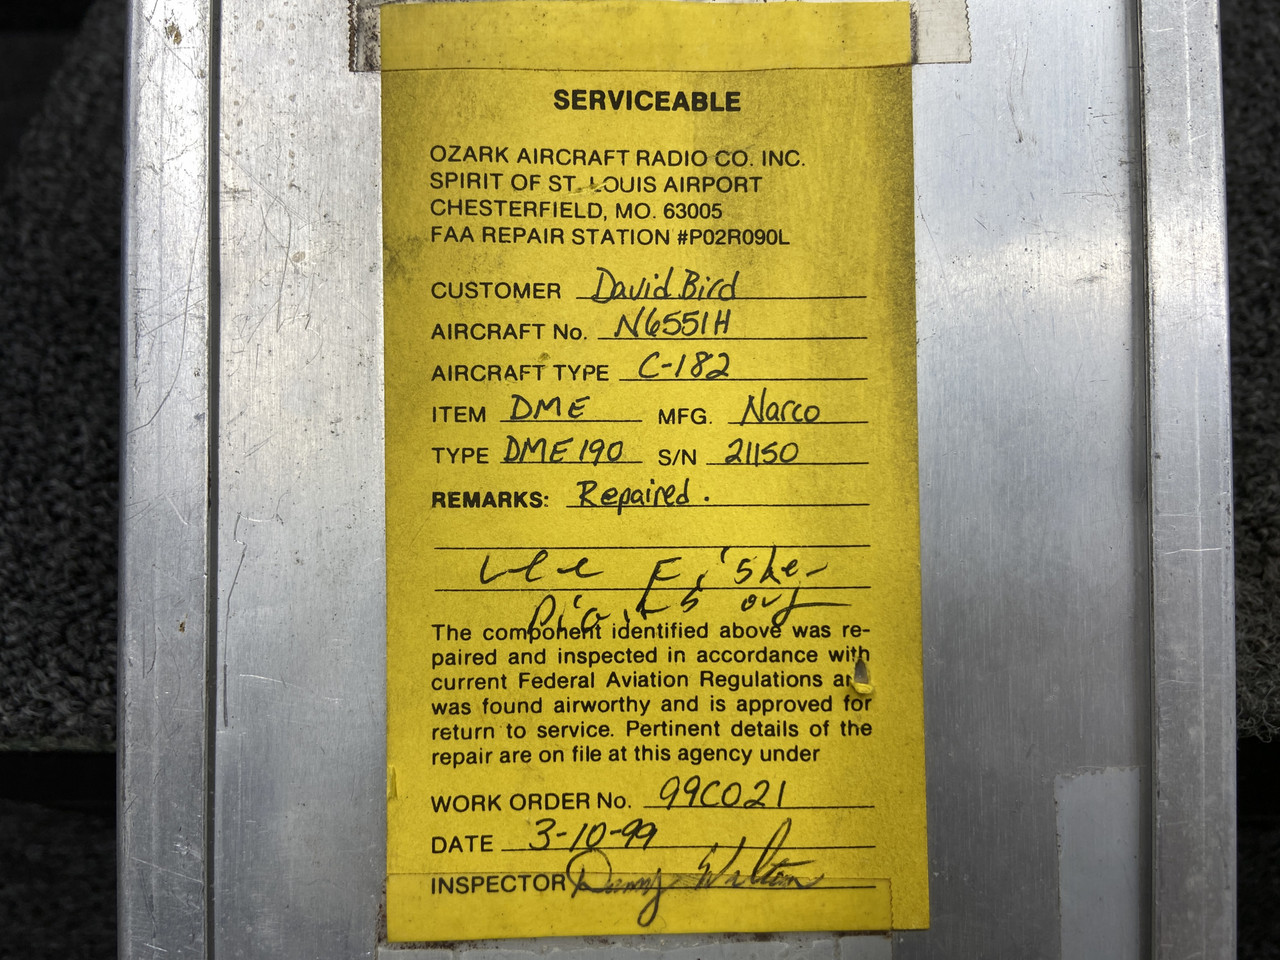 SERVICEABLE
OZARK AIRCRAFT RADIO CO. INC.
SPIRIT OF ST. LOUIS AIRPORT
CHESTERFIELD, MO. 63005
FAA REPAIR STATION #P02R090L
CUSTOMER David Bird
AIRCRAFT No. N6551H
AIRCRAFT TYPE C-182
ITEM DME MFG. Narco
TYPE DME 190 S/N 21150
REMARKS: Repaired.
Lee Fisher
Digits out
The component identified above was re-
paired and inspected in accordance with
current Federal Aviation Regulations an
was found airworthy and is approved for
return to service. Pertinent details of the
repair are on file at this agency under
WORK ORDER No. 99C021
DATE 3-10-99
INSPECTOR Danny Walton